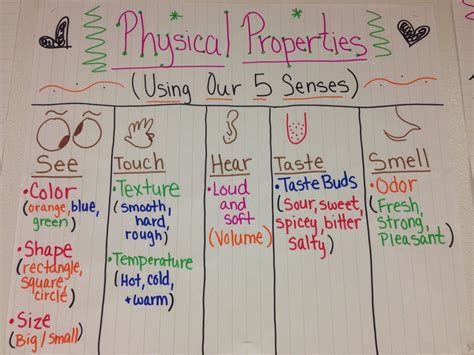 Physical Properties
(Using Our 5 Senses)
See
• Color
(orange, blue,
green)
• Shape
(rectangle,
square,
circle)
• Size
(Big/small)
Touch
• Texture
(smooth,
hard,
rough)
• Temperature
(Hot, cold,
+ warm)
Hear
• Loud
and
soft
(Volume)
Taste
• Taste Buds
(Sour, sweet,
spicey, bitter
salty)
Smell
• Odor
(Fresh,
Strong,
Pleasant)